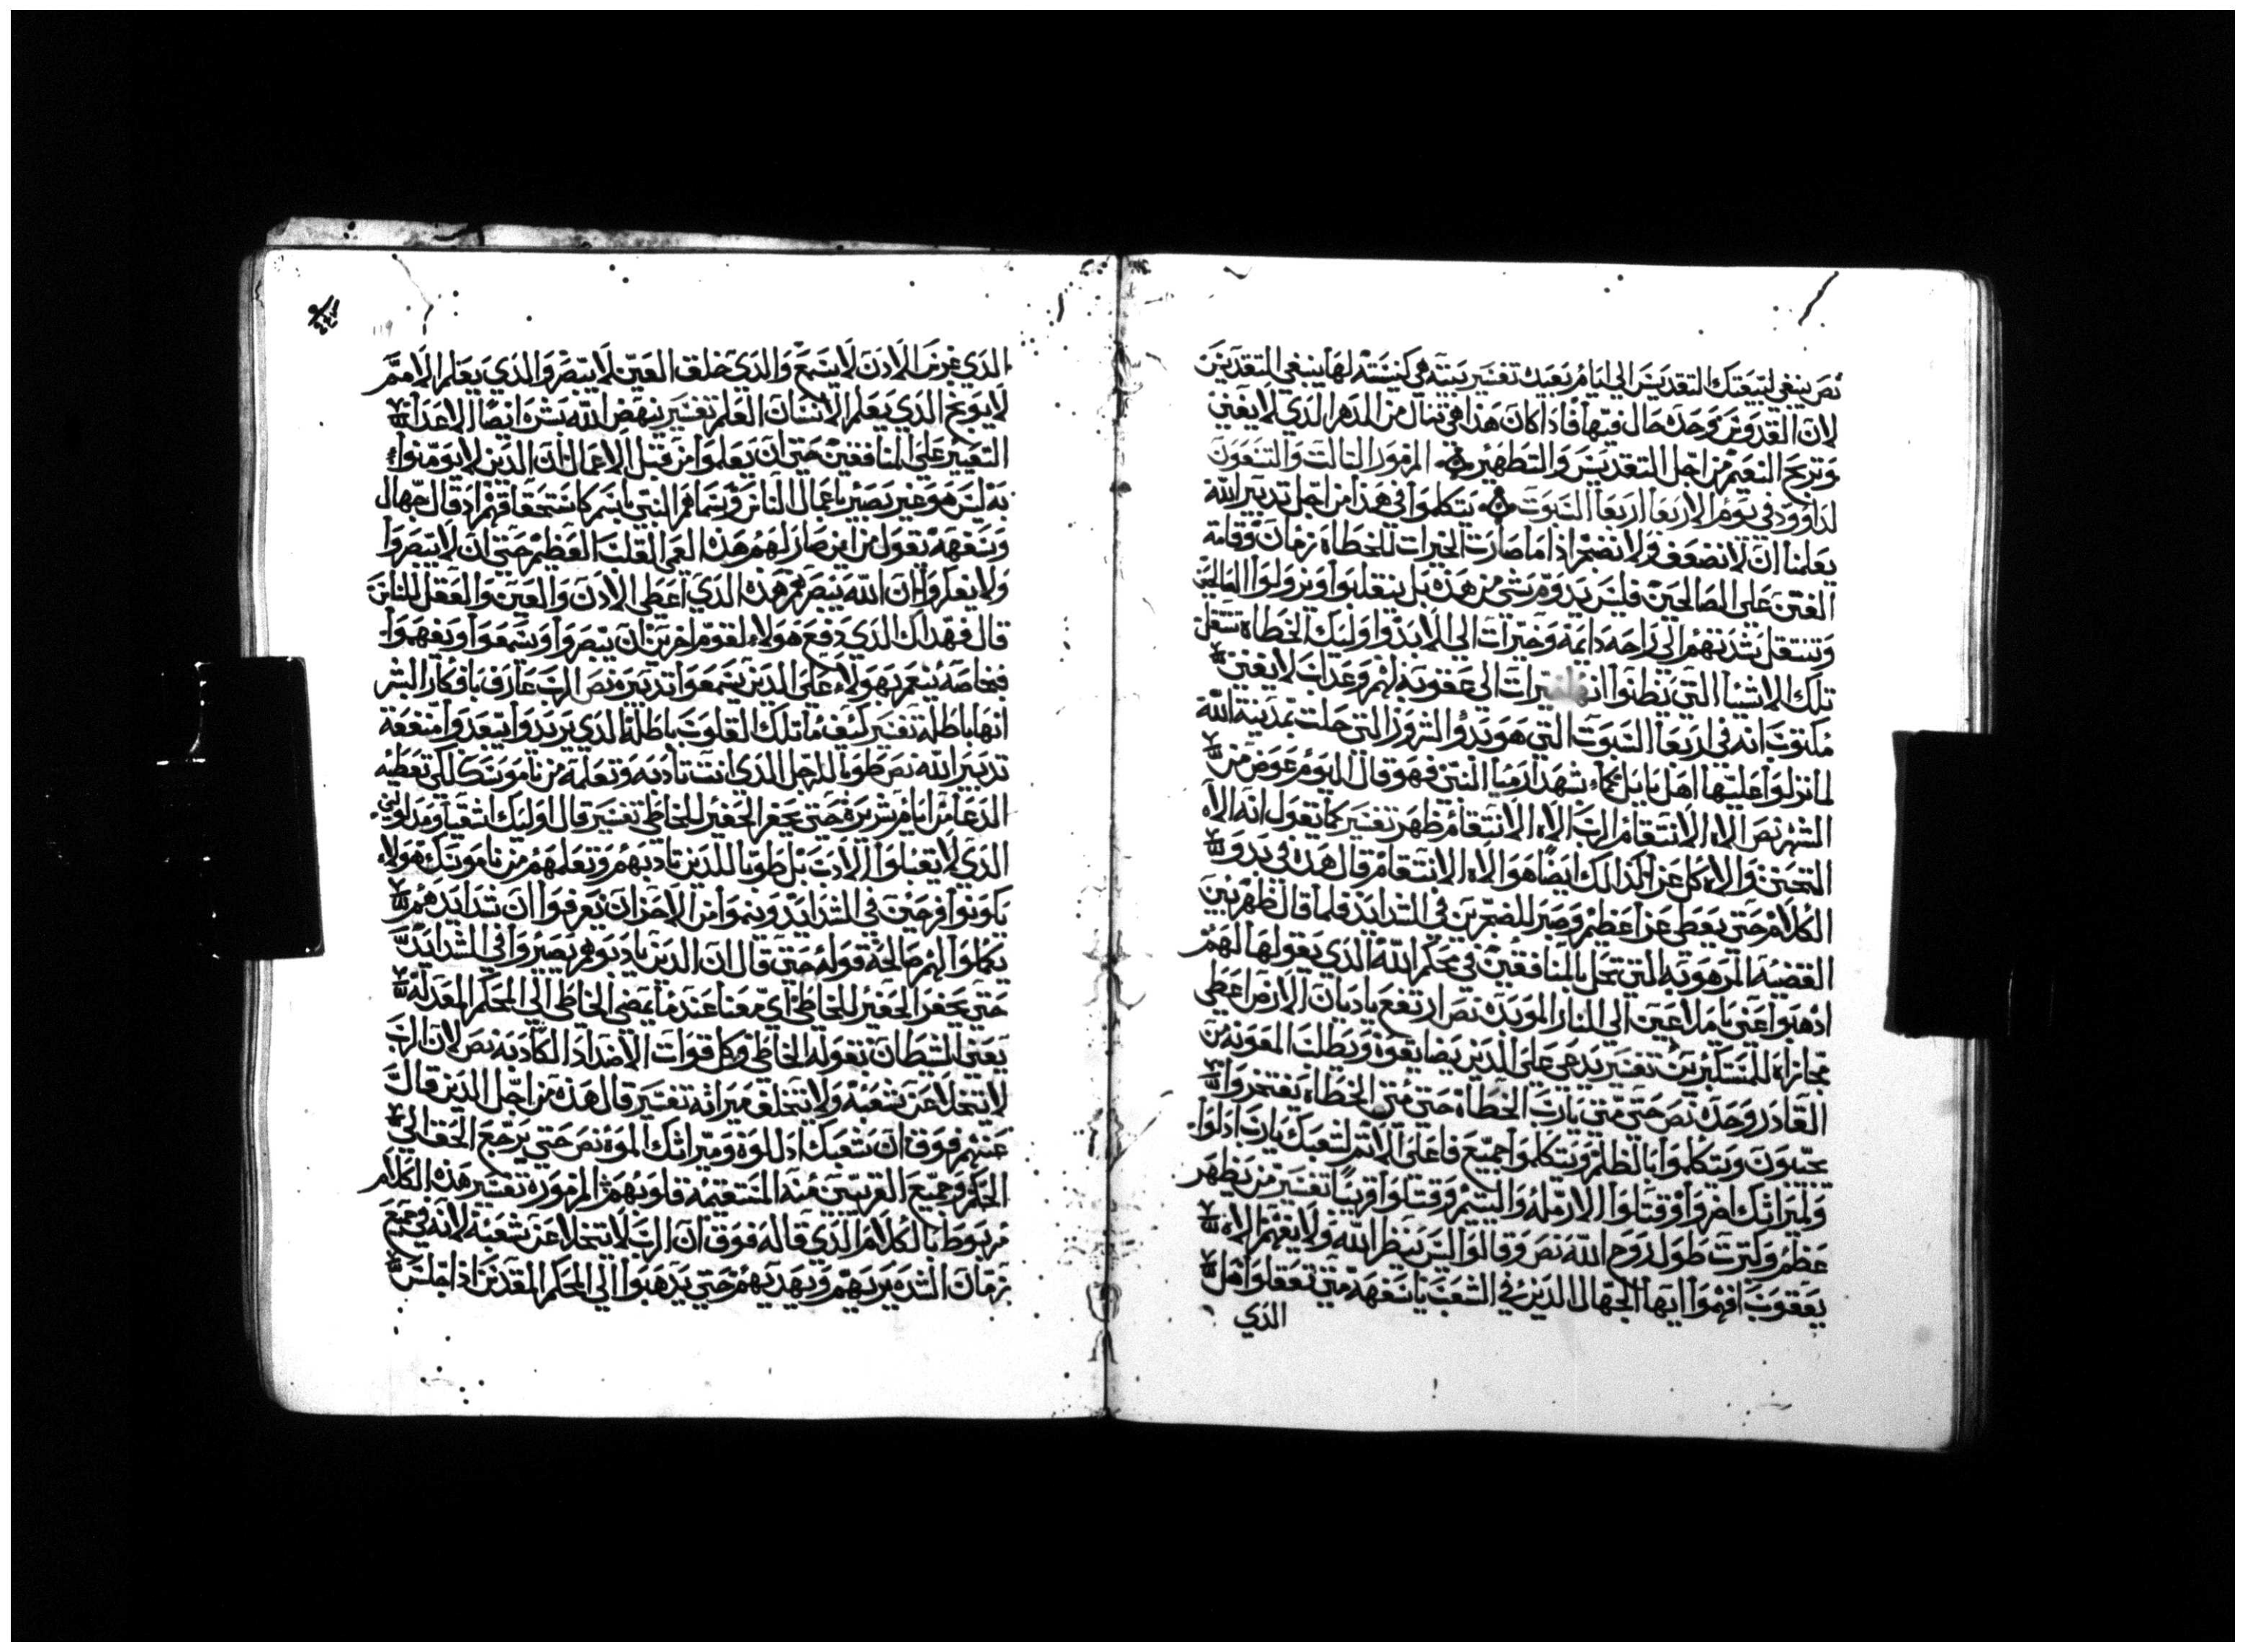 نص ينبغي لبيعتك التقديس الي ايام بعيدك تفسير بيته هي كنيسته لها ينبغي التقديس
لان القدوس وحده حال فيها فاذا كان هذا هي تنال من الدهر الذي لا يفني
وتربح النعم من اجل التقديس والتطهير المزمور الثالث والتسعون
لداوود في يوم الاربعا اربعا السبوت يتكلموا في هذا من اجل تدبير الله
يعلمنا ان لا نضعف ولا نضجر اذا ما صارت الخيرات للخطاه زمان وقامة
الفتن علي الصالحين فليس يدوم شي من هذه بل ينقلبوا ويزولوا الصالحين
وتنتقل شدتهم الي راحه دايمه وخيرات الي الابد واوليك الخطاه تنتقل
تلك الاشيا التي يظنوا انها خيرات الي عقوبه لهم وعداب لا يفني
مكتوب انه في اربعا السبوت التي هو بدو الشرور التي حلت بمدينة الله
لما نزلوا عليها اهل بابل كما شهد ارميا النبي فهو قال اليوم عوض من
الشهر نص الاه الانتقام الرب الاه الانتقام ظهر تفسير كما يقول انه الاه
التحنن والاه كل عزا كذالك ايضًا هو الاه الانتقام قال هذه في بدو
الكلام حتي يعطي عزا عظيم وصبر للضجرين في الشدايد فلما قال ظهر يبين
القضيه المرهوبه التي تحل بالمنافقين في محكم الله الذي يقولها لهم
ادهبوا عني يا ملاعين الي النار الموبده نص ارتفع يا ديان الارض اعطي
مجازاه للمستكبرين تفسير يدعي علي الذين يضايقوه ويطلب المعونه من
القادر وحده نص حتي متي يارب الخطاه حتي متي الخطاه يفتخروا
يجيبون ويتكلموا بالظلم ويتكلموا جميع فاعلي الاثم لشعبك يارب ادلوا
ولميراثك اضروا وقتلوا الارمله واليتيم وقتلوا قريبًا تفسير من يظهر
عظم وكترت طول روح الله نص وقالوا ليس ينظر الله ولا يفهم الاه
يعقوب افهموا ايها الجهال الذين في الشعب يا سفهه متي تعقلوا هل
الذي
الذي غرس الادن لا يسمع والذي خلق العين لا يبصر والذي يعلم الامم
لا يوبخ الذي يعلم الانسان العلم تفسير ينهض الله بشره ايضا الاعدا
التغيير علي المنافقين حتي ان يعلموا من قبل الاعمال ان الذين لا يومنوا
به ليس هو غير بصير باعمال الناس وسماهم النبي باسم كاستحقاقهم اد قال جهال
وسفهه يقول من اين صار لهم هذه العمي القلب العظيم حتي ان لا يبصروا
ولا يعلموا ان الله يبصرهم هذه الذي اعطي الادن والعين والعقل للناس
قال فهدلك الذي دفع هولاء لقوم اخرين ان يبصروا ويسمعوا ويفهموا
فبخاصه ينعم بهولاء علي الدين يسمعوا تدبيره نص الرب عارف بافكار البشر
انها باطله تفسير كيف ما تلك القلوب باطلة الذي يريدوا يبعدوا منفعة
تدبير الله نص طوبا للرجل الذي انت تادبه وتعلمه من ناموسك لكي تعطيه
الدعا من ايام شريره حتي يحفر الحفير للخاطي تفسير قال اوليك اشقيا ومدلولين
الذي لا يقبلوا الادب بل طوبا للدين تادبهم وتعلمهم من ناموسك هولاء
يكونوا فرحين في الشدايد وينموا من الاحزان يعرفوا ان شدايدهم
يكملوا لهم صالحة قوله حتي قال ان الدين يادبوهم يصبروا في الشدايد
حتي يحفر الحفير للخاطي اي معنا عند ما يمضي الخاطي الي المحكم المعدله
يعني الشيطان بقوله الخاطي وكل قوات الاضداد الكادبه نص لان الرب
لا يتخلا عن شعبه ولا يتخلف ميراثه تفسير قال هذه من اجل الدين قال
عنهم فوق ان شعبك ادللوه وميراثك الموه نص حتي يرجع الحق الي
الحكم وجميع القريبين منه المستقيمه قلوبهم المزموره تفسير هذه الكلام
مربوط بالكلام الذي قاله فوق ان الرب لا يتخلا عن شعبه لانه في جميع
زمان الشده يربيهم ويهديهم حتي يدهبوا الي المحكم المقدس اذا جلس